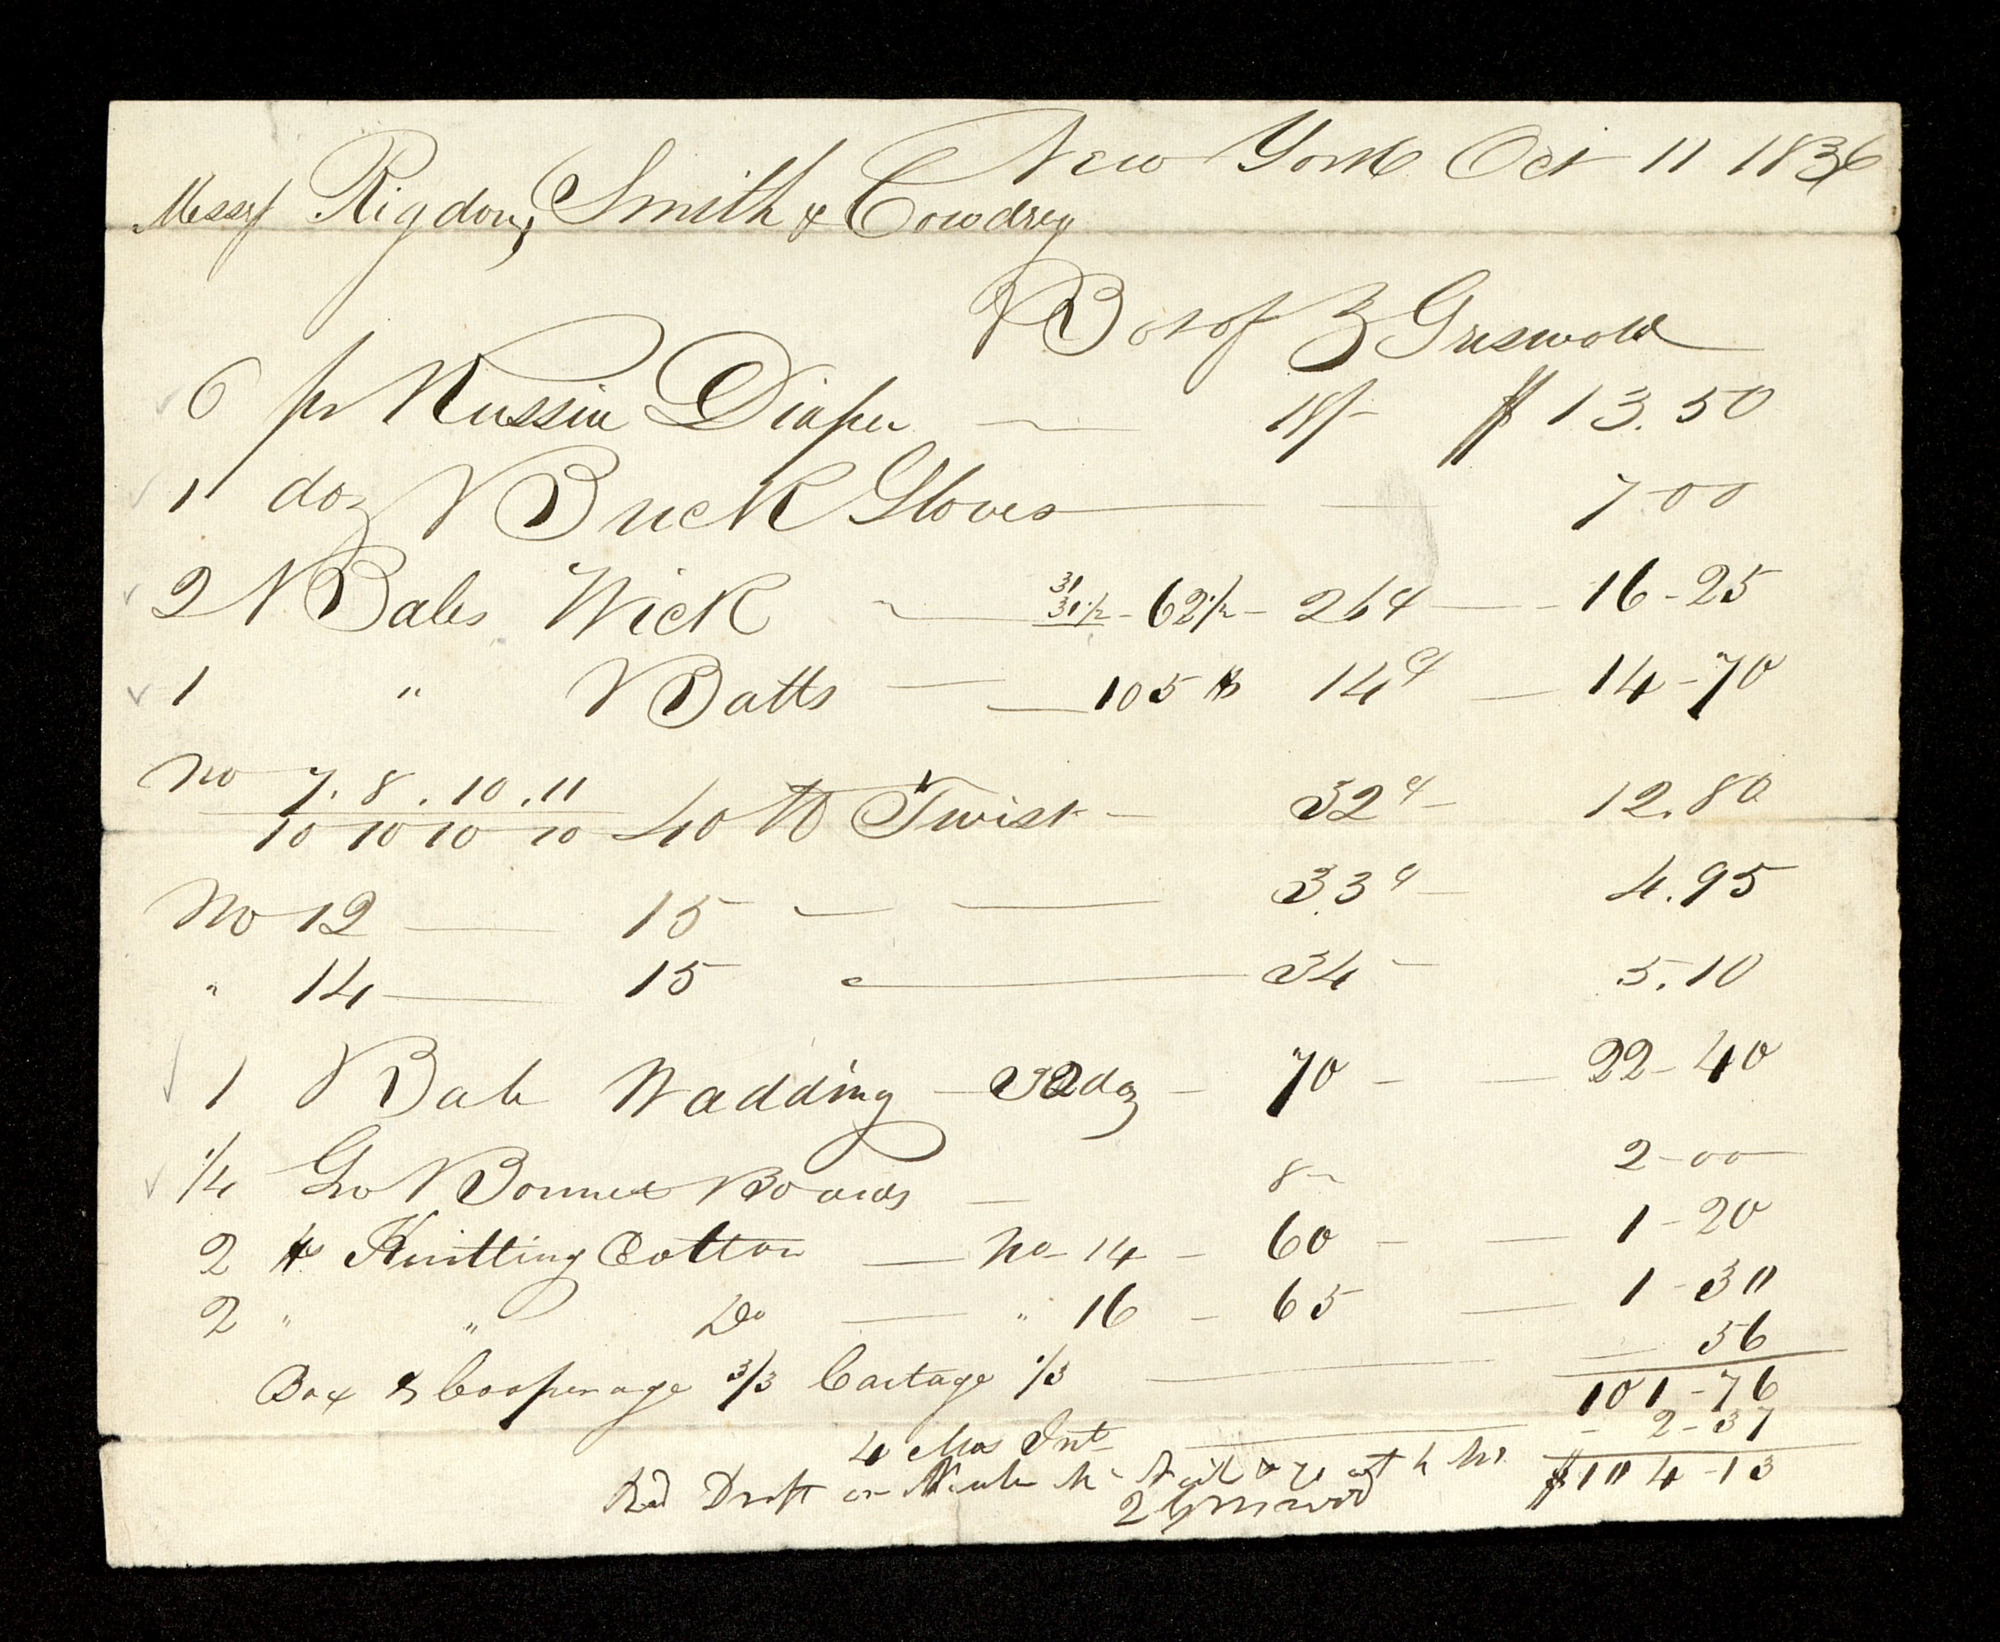 New York Oct 11 1836
Messrs Rigdon, Smith & Cowdrey
Bot of Z Griswold
6 ps Russia Diaper 18/- $13.50
1 doz Buck Gloves 7-00
2 Bales Wick 31 31 1/2 - 62 1/2 - 26¢ 16-25
1 " Batts 105 lb 14¢ 14-70
No 7. 8. 10. 11
10 10 10 10 40 lb Twist 32¢ 12.80
No 12 15 33¢ 4.95
" 14 15 34 5.10
1 Bale Wadding 32 doz 70 22-40
1/4 Gro Bonnet Boards 8- 2-00
2 lb Knitting Cotton No 14 60 1-20
2 " " Do " 16 65 1-30
Box & Cooperage 3/3 Cartage 1/3 56
101-76
4 Mos Int 2-37
$104-13
Recd Draft on
Z Griswold